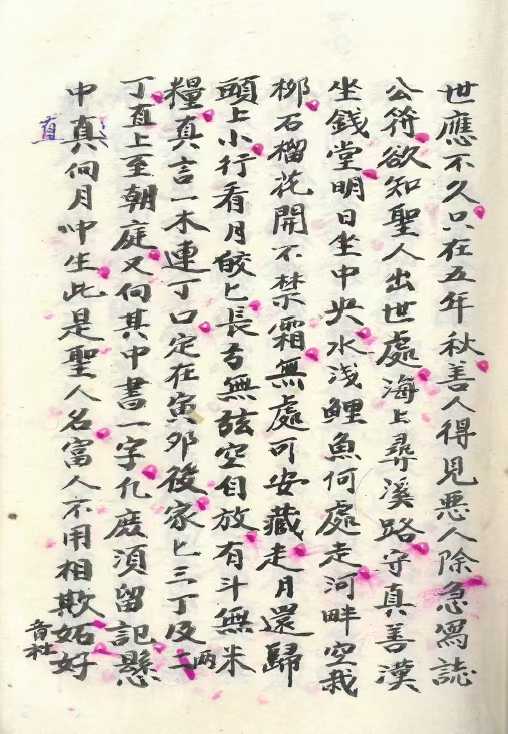 世應不久只在五年秋善人得見悪人除急寫誌
公符欲知聖人出世處海上尋溪路守真善漢
坐錢堂明日坐中央水浅鯉魚何處走河畔空栽
栁石榴花開不禁霜無處可安藏走月還歸
頭上小行看月皎匕長弓無弦空自放有斗無米
糧真言一木連丁口定在寅夘後家匕三丁及二
两
丁直上至朝庭又向其中書一字凢庶須留記懸
中真向月中生此是聖人名富人不用相欺妬好
直
音社